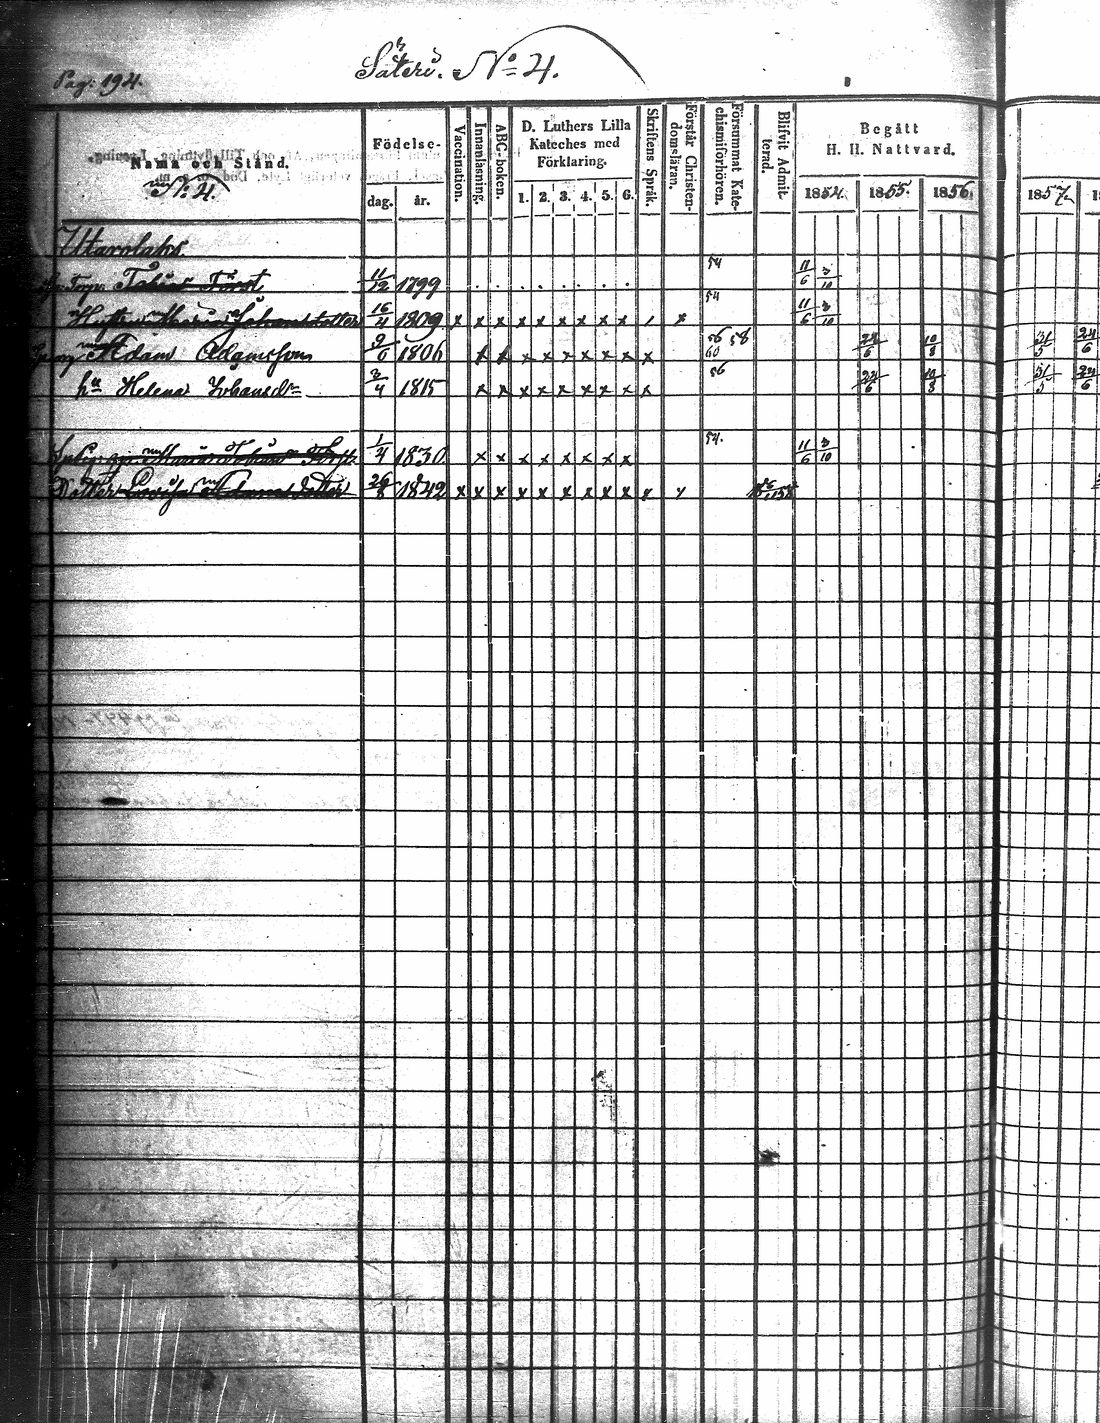 Pag: 194.
Säteri. No 4.
Namn och Stånd.
No 4.
Födelse-
dag.
år.
Vaccination.
Innanläsning.
ABC-boken.
D. Luthers Lilla
Kateches med
Förklaring.
1. 2. 3. 4. 5. 6.
Skriftens Språk.
Förstår Christen-
domsläran.
Försummat Kate-
chismiförhören.
Blifvit Admit-
terad.
Begått
H. H. Nattvard.
1854. 1855. 1856.
1857.
11/12 1799 . . . . . . . . . 54 11/6 3/10
Maria Johansdotter 16/4 1809 x x x x x x x x x / x 54 11/6 3/10
Adam Adamsson 9/6 1806 x x x x x x x x x 56 58 60 24/6 10/8 31/5 24/6
hu Helena Johansdr 3/4 1815 x x x x x x x x x 56 24/6 10/8 31/5 24/6
Maria 1/4 1830 x x x x x x x x 54. 11/6 3/10
Dotter Lovisa Adamsdotter 26/8 1842 x x x x x x x x x x x